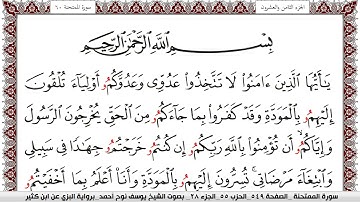 الجزء الثامن والعشرون
سورة الممتحنة ٦٠
بِسْمِ ٱللَّهِ ٱلرَّحْمَٰنِ ٱلرَّحِيمِ
يَـٰٓأَيُّهَا ٱلَّذِينَ ءَامَنُوا۟ لَا تَتَّخِذُوا۟ عَدُوِّى وَعَدُوَّكُمُۥٓ أَوْلِيَآءَ تُلْقُونَ
إِلَيْهِمُۥ بِٱلْمَوَدَّةِ وَقَدْ كَفَرُوا۟ بِمَا جَآءَكُمُۥ مِنَ ٱلْحَقِّ يُخْرِجُونَ ٱلرَّسُولَ
وَإِيَّاكُمُۥٓ أَن تُؤْمِنُوا۟ بِٱللَّهِ رَبِّكُمُۥٓ إِن كُنتُمُۥ خَرَجْتُمُۥ جِهَـٰدًا فِى سَبِيلِى
وَٱبْتِغَآءَ مَرْضَاتِى تُسِرُّونَ إِلَيْهِمُۥ بِٱلْمَوَدَّةِ وَأَنَا۠ أَعْلَمُ بِمَآ أَخْفَيْتُمُۥ
سورة الممتحنة _ الصفحة ٥٤٩ _ الحزب ٥٥ _ الجزء ٢٨ _ بصوت الشيخ يوسف نوح أحمد _ برواية البزي عن ابن كثير